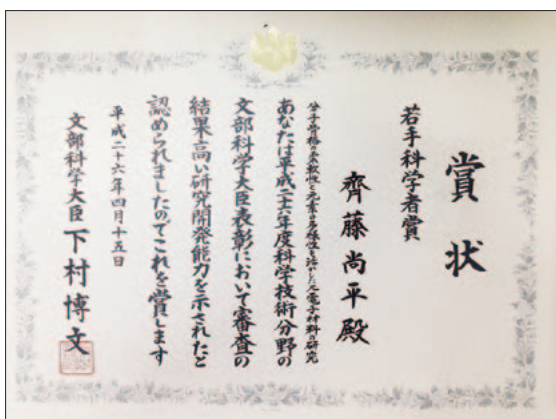 賞状
若手科学者賞
齊藤尚平殿
分子骨格の柔軟性と元素の多様性を活かした光電子材料の研究
あなたは平成二十六年度科学技術分野の
文部科学大臣表彰において審査の
結果高い研究開発能力を示されたと
認められましたのでこれを賞します
平成二十六年四月十五日
文部科学大臣 下村博文